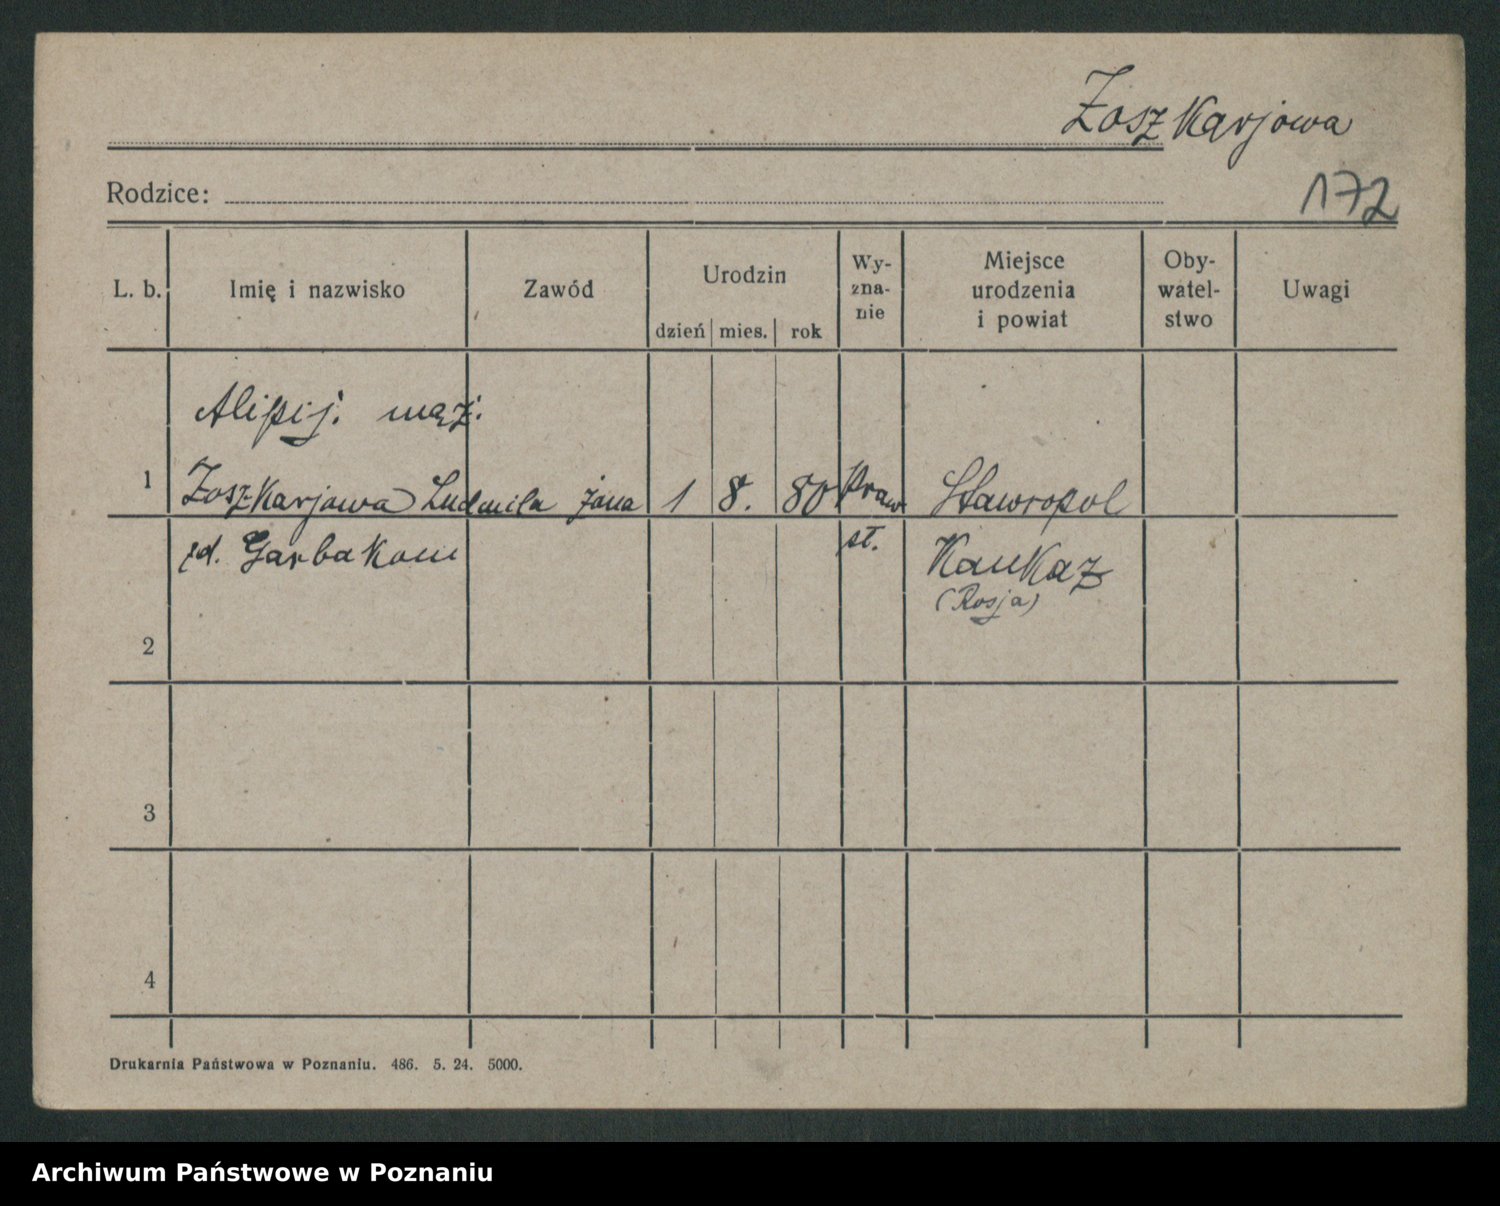 Zoszkarjowa
Rodzice:
172
L. b.
Imię i nazwisko
Zawód
Urodzin
dzień mies. rok
Wy-
zna-
nie
Miejsce
urodzenia
i powiat
Oby-
watel-
stwo
Uwagi
Alipij. mąż.
1 Zoszkarjowa Ludmila żona 1 8. 80 Praw Stawropol
st.
Kaukaz
(Rosja)
2
3
4
Drukarnia Państwowa w Poznaniu. 486. 5. 24. 5000.
Archiwum Państwowe w Poznaniu